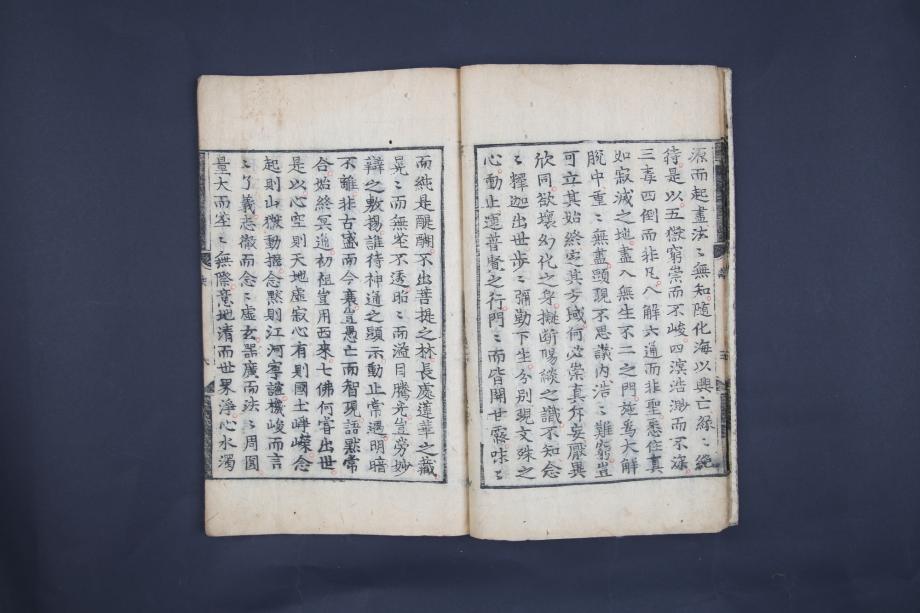 源而起盡法〻無知隨化海以興亡緣〻絶
待是以五嶽穹崇而不峻四溟浩渺而不深
三毒四倒而非凡八解六通而非聖悉住真
如寂滅之地盡入無生不二之門施爲大解
脫中重〻無盡顯現不思議內浩〻難窮豈
可立其始終定其方域何必崇真斥妄厭異
欣同欲壞幻化之身擬斷陽燄之識不知念
〻釋迦出世步〻彌勒下生分別現文殊之
心動止運普賢之行門〻而皆開甘露味〻
而純是醍醐不出菩提之林長處蓮華之藏
晃〻而無塵不透昭〻而溢目騰光豈勞妙
辯之敷揚誰待神通之顯示動止常遇明暗
不離非古盛而今衰豈愚亡而智現語默常
合始終冥通初祖豈用西來七佛何曾出世
是以心空則天地虛寂心有則國土崢嶸念
起則山嶽動搖念默則江河寧謐機峻而言
〻了義志徹而念〻虛玄器廣而法〻周圓
量大而空〻無際意地清而世界淨心水濁